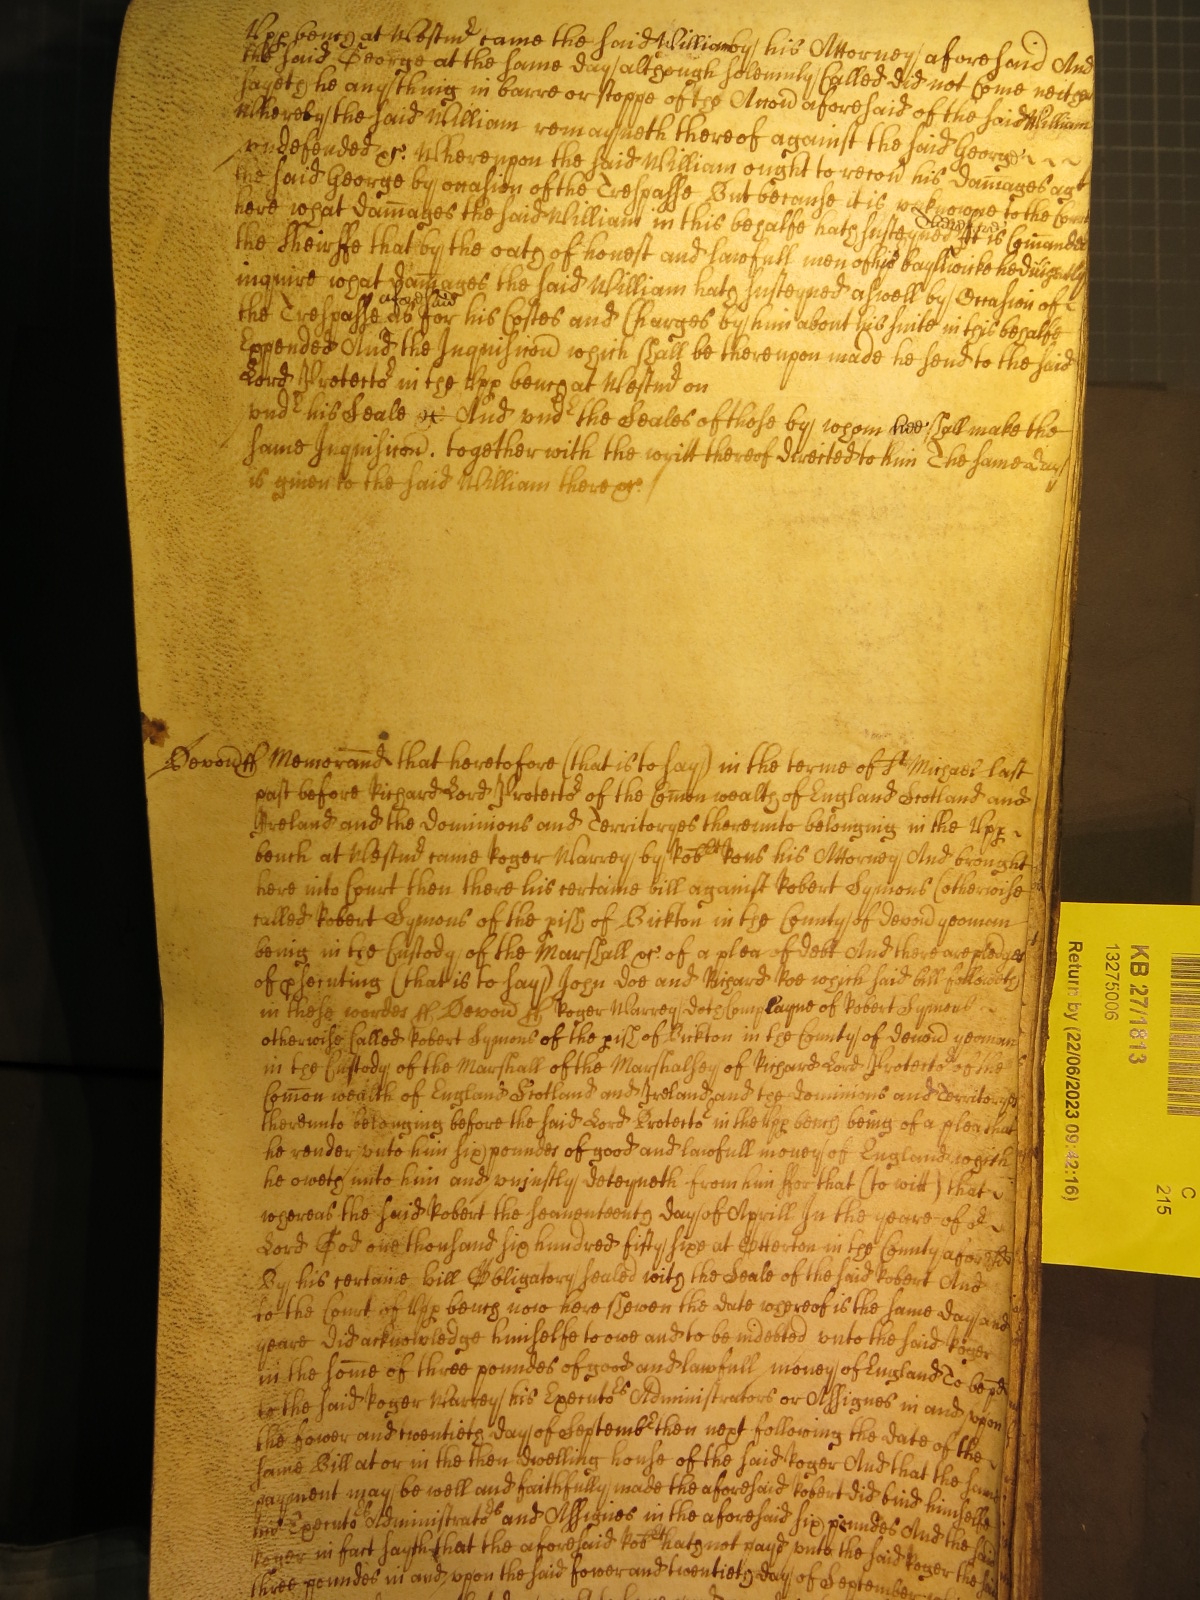 Upp bench at Westmr came the said William by his Attorney aforesaid And
the said George at the same day although solemnly Called did not Come neither
sayeth he any thing in barre or stoppe of the Accon aforesaid of the said William
Whereby the said William remayneth thereof against the said George
undefended &c. Whereupon the said William ought to recover his damages agt
the said George by occasion of the Trespasse But because it is unknowne to the Court
here what damages the said William in this behalfe hath susteyned It is Comanded
the Sheriffe that by the oath of honest and lawfull men of his bayliwicke he diligently
inquire what damages the said William hath susteyned aswell by Occasion of
the Trespasse aforesaid as for his Costes and Charges by him about his suite in this behalfe
Expended And the Inquisicon which shall be thereupon made he send to the said
Lord Protector in the Upp bench at Westmr on
undr his Seale &c And undr the Seales of those by whom hee shall make the
same Inquisicon together with the writt thereof directed to him The same day
is given to the said William there &c.
Devon ss Memorand that heretofore (that is to say) in the terme of St Michael last
past before Richard Lord Protector of the Comon wealth of England Scotland and
Ireland and the Dominions and Territoryes thereunto belonging in the Upp
bench at Westmr came Roger Warrey by Robert Rous his Attorney And brought
here into Court then there his certaine bill against Robert Symons (otherwise
called Robert Symons of the pish of Bickton in the County of Devon yeoman
being in the Custody of the Marshall &c. of a plea of debt And there are pledges
of psecuting (that is to say) John Doe and Richard Roe which said bill followeth
in these wordes ss Devon ss Roger Warrey doth Complayne of Robert Symons
otherwise Called Robert Symons of the pish of Bickton in the County of Devon yeoman
in the Custody of the Marshall of the Marshalsey of Richard Lord Protector of the
Comon wealth of England Scotland and Ireland and the dominions and Territoryes
thereunto belonging before the said Lord Protector in the Upp bench being of a plea that
he render unto him six poundes of good and lawfull money of England which
he oweth unto him and unjustly deteyneth from him ffor that (to witt) that
whereas the said Robert the seaventeenth day of Aprill In the yeare of or
Lord God one thousand six hundred fifty sixe at Otterton in the County aforesd
By his certaine bill Obligatory sealed with the Seale of the said Robert And
to the Court of Upp bench now here shewen the date whereof is the same day and
yeare Did acknowledge himselfe to owe and to be indebted unto the said Roger
in the some of three poundes of good and lawfull money of England To be pd
to the said Roger Warrey his Executors Administrators or Assignes in and upon
the fower and twentieth day of Septembr then next following the date of the
same Bill at or in the then dwelling house of the said Roger And that the same
payment may be well and faithfully made the aforesaid Robert did bind himselfe
his Executors Administrators and Assignes in the aforesaid six poundes And the said
Roger in fact sayth that the aforesaid Robert hath not payd unto the said Roger the said
three poundes in and upon the said fower and twentieth day of September
KB 27/1813
13275006
Return by (22/06/2023 09:42:16)
C
215